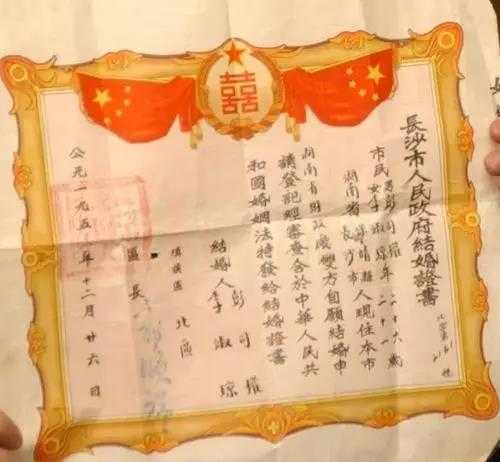 囍
長沙市人民政府結婚證書
北字第 號
市民男彭司 年二十六歲
女李淑琼年二十一
湖南省 縣
長沙市人現住本市
湖南省財政廳雙方自願結婚申
請登記經審查合於中華人民共
和國婚姻法特發給結婚證書
結婚人彭司
李淑琼
區 北區
區長
公元一九五 年十二月廿六日